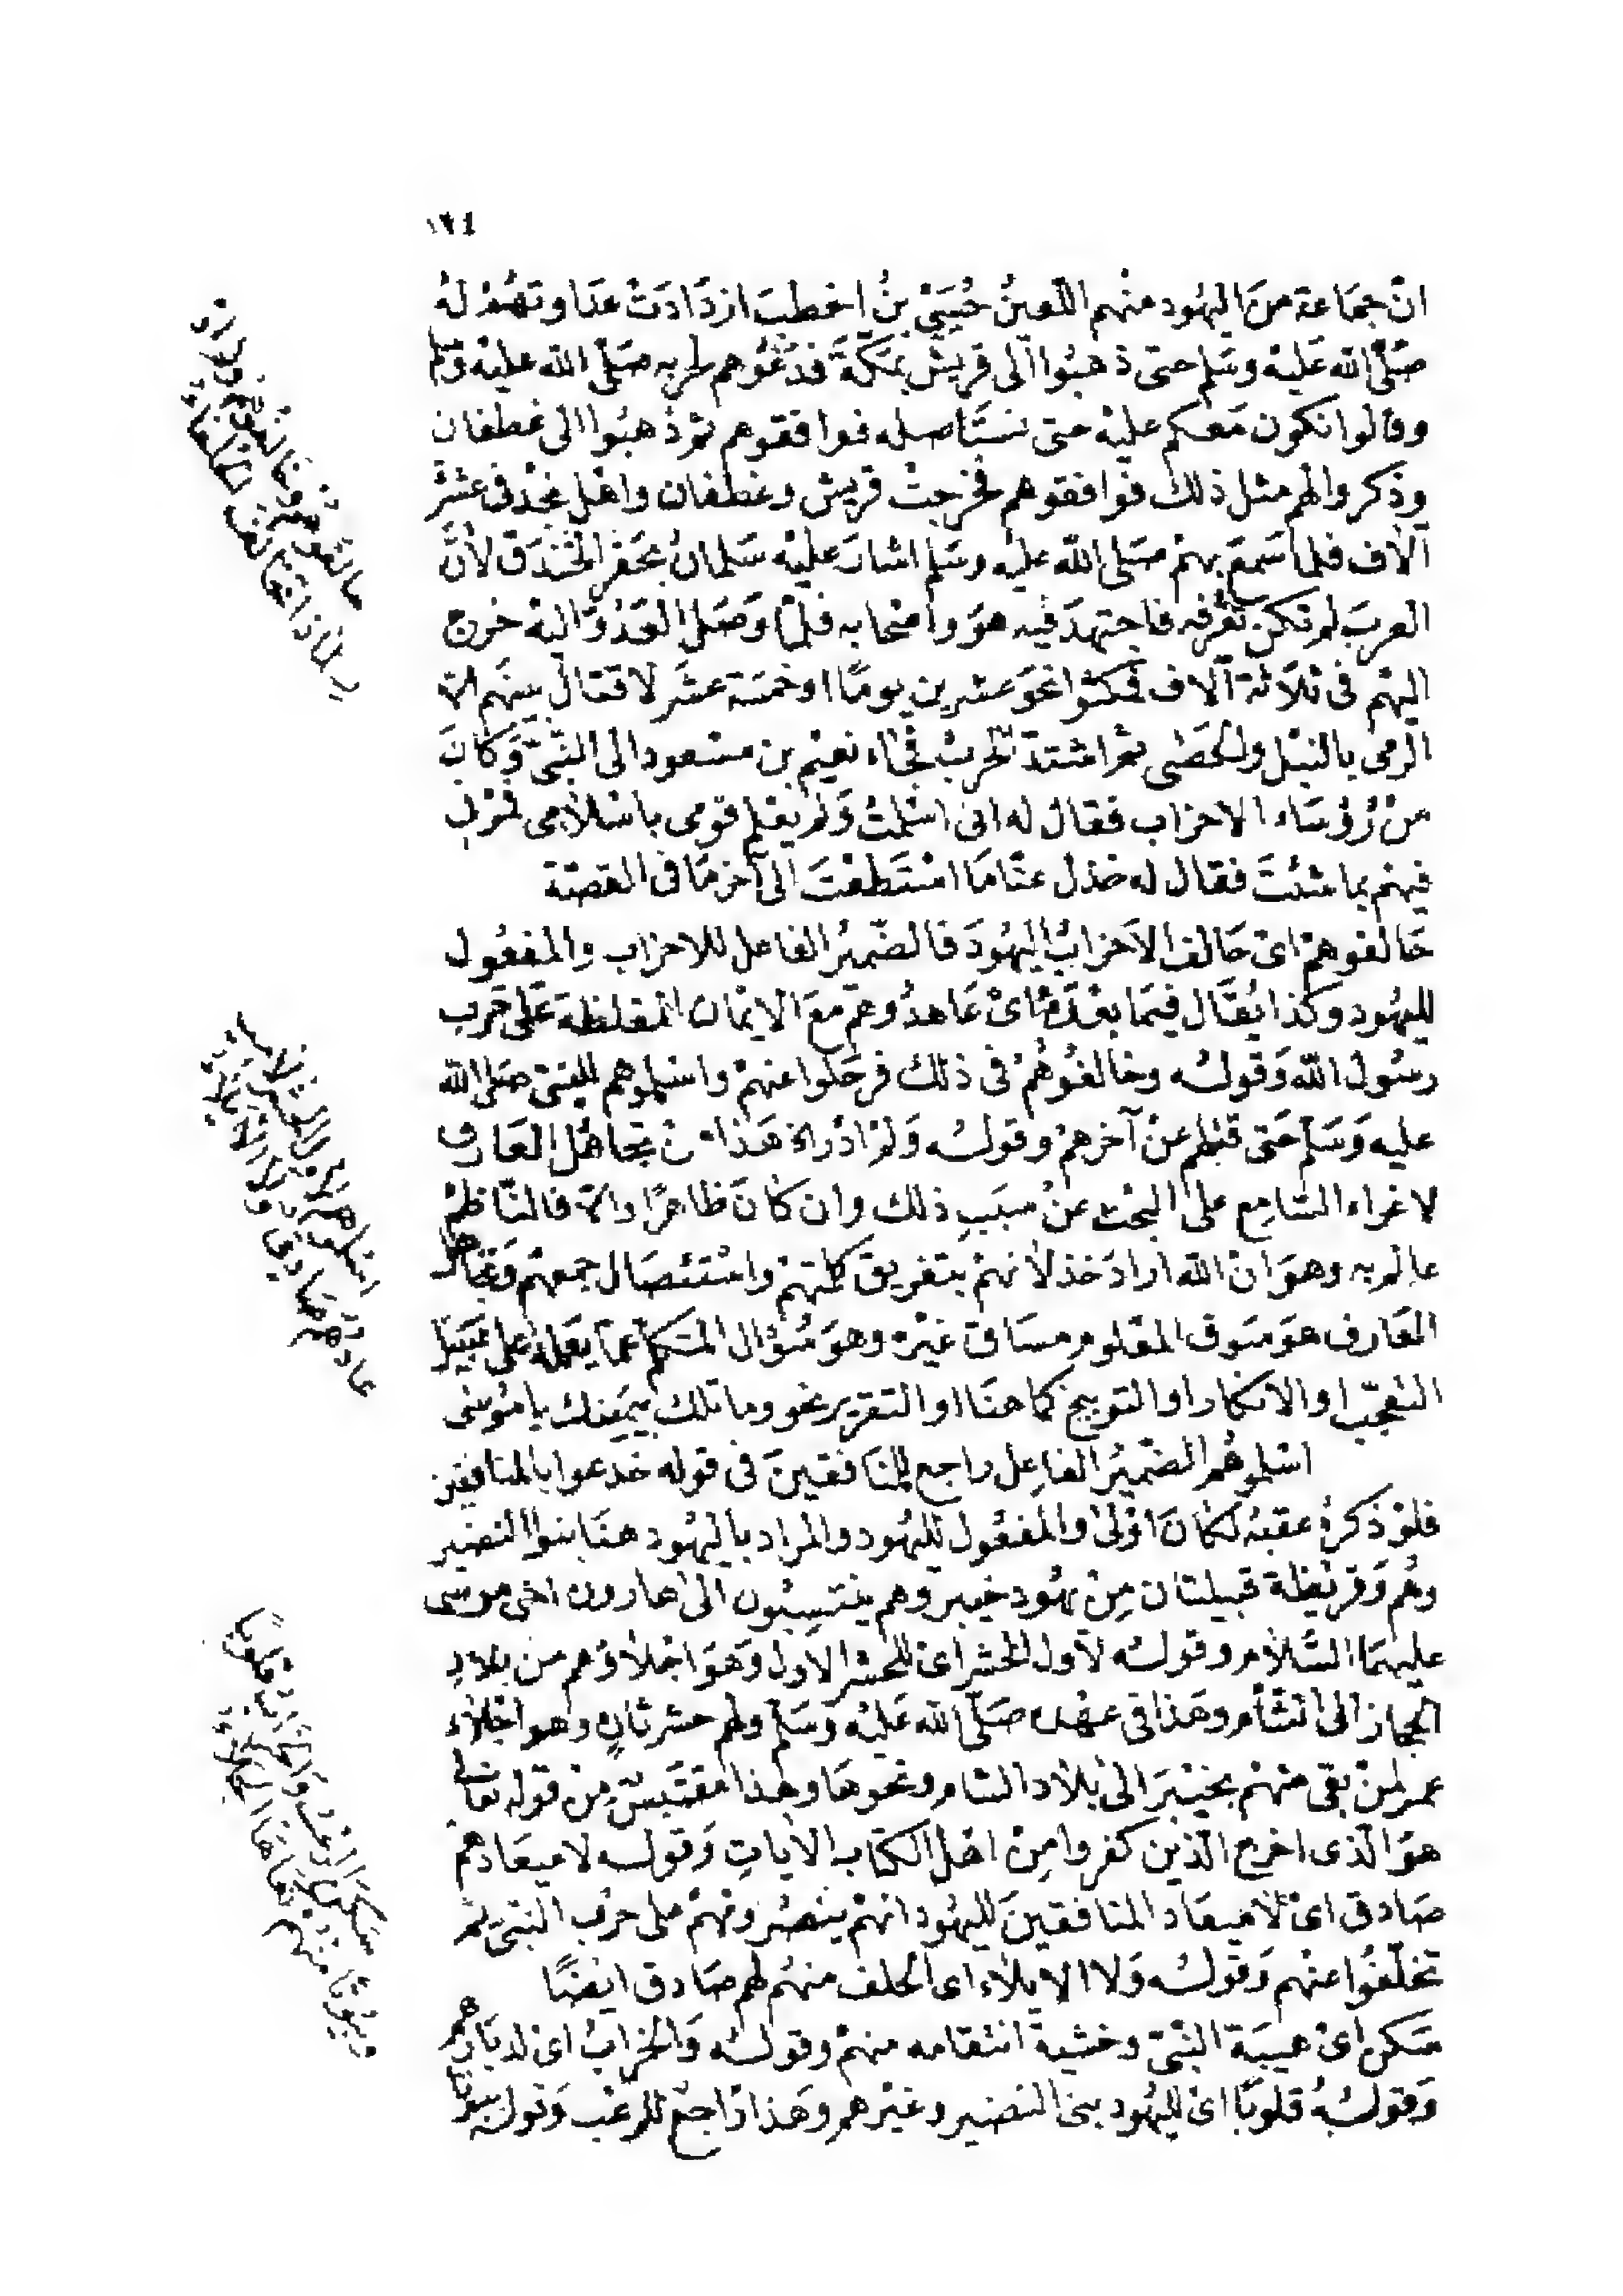 ١٢٤
انّ جماعة منَ اليهُود منهم اللّعينُ حُيَيّ بنُ اخطبَ ازدَادَتْ عداوتهُمْ لهُ
صَلّى الله عَليْه وسَلم حتى ذهبُوا الى قريش بمَكّةَ فدَعَوْهم لحربه صَلّى الله عليْه وسلم
وقالوا نكون مَعكم عليْه حتى نستَاصله فوافقوهم ثم ذهبُوا الى غطفان
وذكروا لهم مثل ذلك فوافقوهم فخرجتْ قريش وغطفان واهْل نجدْ فى عشرَة
آلاف فلما سَمعَ بهمْ صَلى الله عليْه وسَلم اشارَ عليْه سَلمانُ بحَفر الخندَق لأنّ
العربَ لم تكن تعْرفه فاجتهدَ فيه هوَ واصْحابه فلمّا وَصَلَ العَدُوّ اليهْ خرج
اليهْم فى ثلاثة آلاف فمكثوا نحوَ عشرين يومًا او خمسَة عشَر لا قتال بينهم الا
الرمى بالنبْل والحَصَى ثم اشتدّ الحربْ فجاء نعيْم بن مسْعود الى النّبىّ وَكانَ
منْ رُؤسَاء الاحزاب فقال له انى اسْلمتُ وَلم يعْلم قومى باسْلامى فمُرنى
فيهمْ بما شئتَ فقال له خذل عنّا مَا اسْتَطعْتَ الى آخر مَا فى القصّة
حَالفوهمْ اىْ حَالفَ الاَحزابُ اليهُودَ فالضّميرُ الفاعل للاحزاب والمفعُول
لليهُود وكذا يُقال فيمَا بعْدهُ اىْ عَاهدُوهم معَ الايمان المغلظة عَلى حَرب
رسُول اللّه وَقولهُ وخالفُوهُمْ فى ذلك فرحَلوا عنهمْ واسْلموهم للنبىّ صَلى الله
عليه وَسَلم حَتى قتلهم عنْ آخرهمْ وقولهُ وَلمْ ادْر الخ هَذا منْ تجاهُل العَارف
لاغراء السّامع على البحْث عنْ سبَب ذلك وان كانَ ظاهرًا والاّ فالنّاظمْ
عالم به وهوَ انّ الله ارادَ خذلانهمْ بتفريق كلمتهمْ واسْتئصَال جمعهمْ وَتجاهل
العَارف هوَ سَوق المعْلوم مسَاق غيْره وهوَ سُؤال المتكلم عمّا يَعْلمهُ على سَبيل
التعَجّب او الانكار او التوبيخ كما هنا او التقرير نحو وما تلك بيَمينك يا مُوسَى
اسْلموهُم الضّميرُ الفاعل راجع للمنَافقينَ فى قوله خدعوا بالمنافقين
فلوْ ذكرهُ عقبهُ لكانَ اوْلى والمفعُول لليهُود والمراد باليهُود هنَا بنوا النضير
وهُم وَقريْظة قبيلتان منْ يهُود خيبر وهم ينتسِبُون الى هارون اخى موسى
عليهمَا السَّلام وقولهُ لأول الحَشر اىْ للحشر الاول وَهوَ اجْلاؤهم من بلادِ
الحجاز الى الشأم وهَذا فى عهْده صَلّى الله عَليْه وَسَلم ولهم حشر ثانٍ وهو اجْلاء
عمر لمنْ بقى منهمْ بخيْبرَ الى بلاد الشام ونحوهَا وهذا مقتَبسٌ منْ قوله تعالى
هوَ الّذى اخرج الّذين كفروا منْ اهْل الكتاب الآياتِ وَقوله لا ميعَادهم
صَادق اىْ لا ميعَاد المنافقينَ لليهُود انهمْ ينصُرونهمْ على حَرْب النبىّ ثم
تخلّفُوا عنهم وَقولهُ وَلا الايلاء اى الحلف منهُم لهم صَادق ايْضًا
سَكن اىْ هيبَة النّبىّ وخشية انتقامه منهمْ وقولهُ وَالخرابُ اىْ لديَارهم
وَقولهُ قلوبًا اىْ لليهُود بنى النضير وغيْرهمْ وهَذا رَاجعٌ للرعْب وَقوله بيوتا
حالفوهم وخالفوهم ولم ادر
لماذا تخالف الحلفاء
اسلموهم لاول الحشر لا ميـ
عادهم صادق ولا الايلاء
سكن الرعب والخراب قلوبًا
وبيوتا منهم نعاها الجلاء